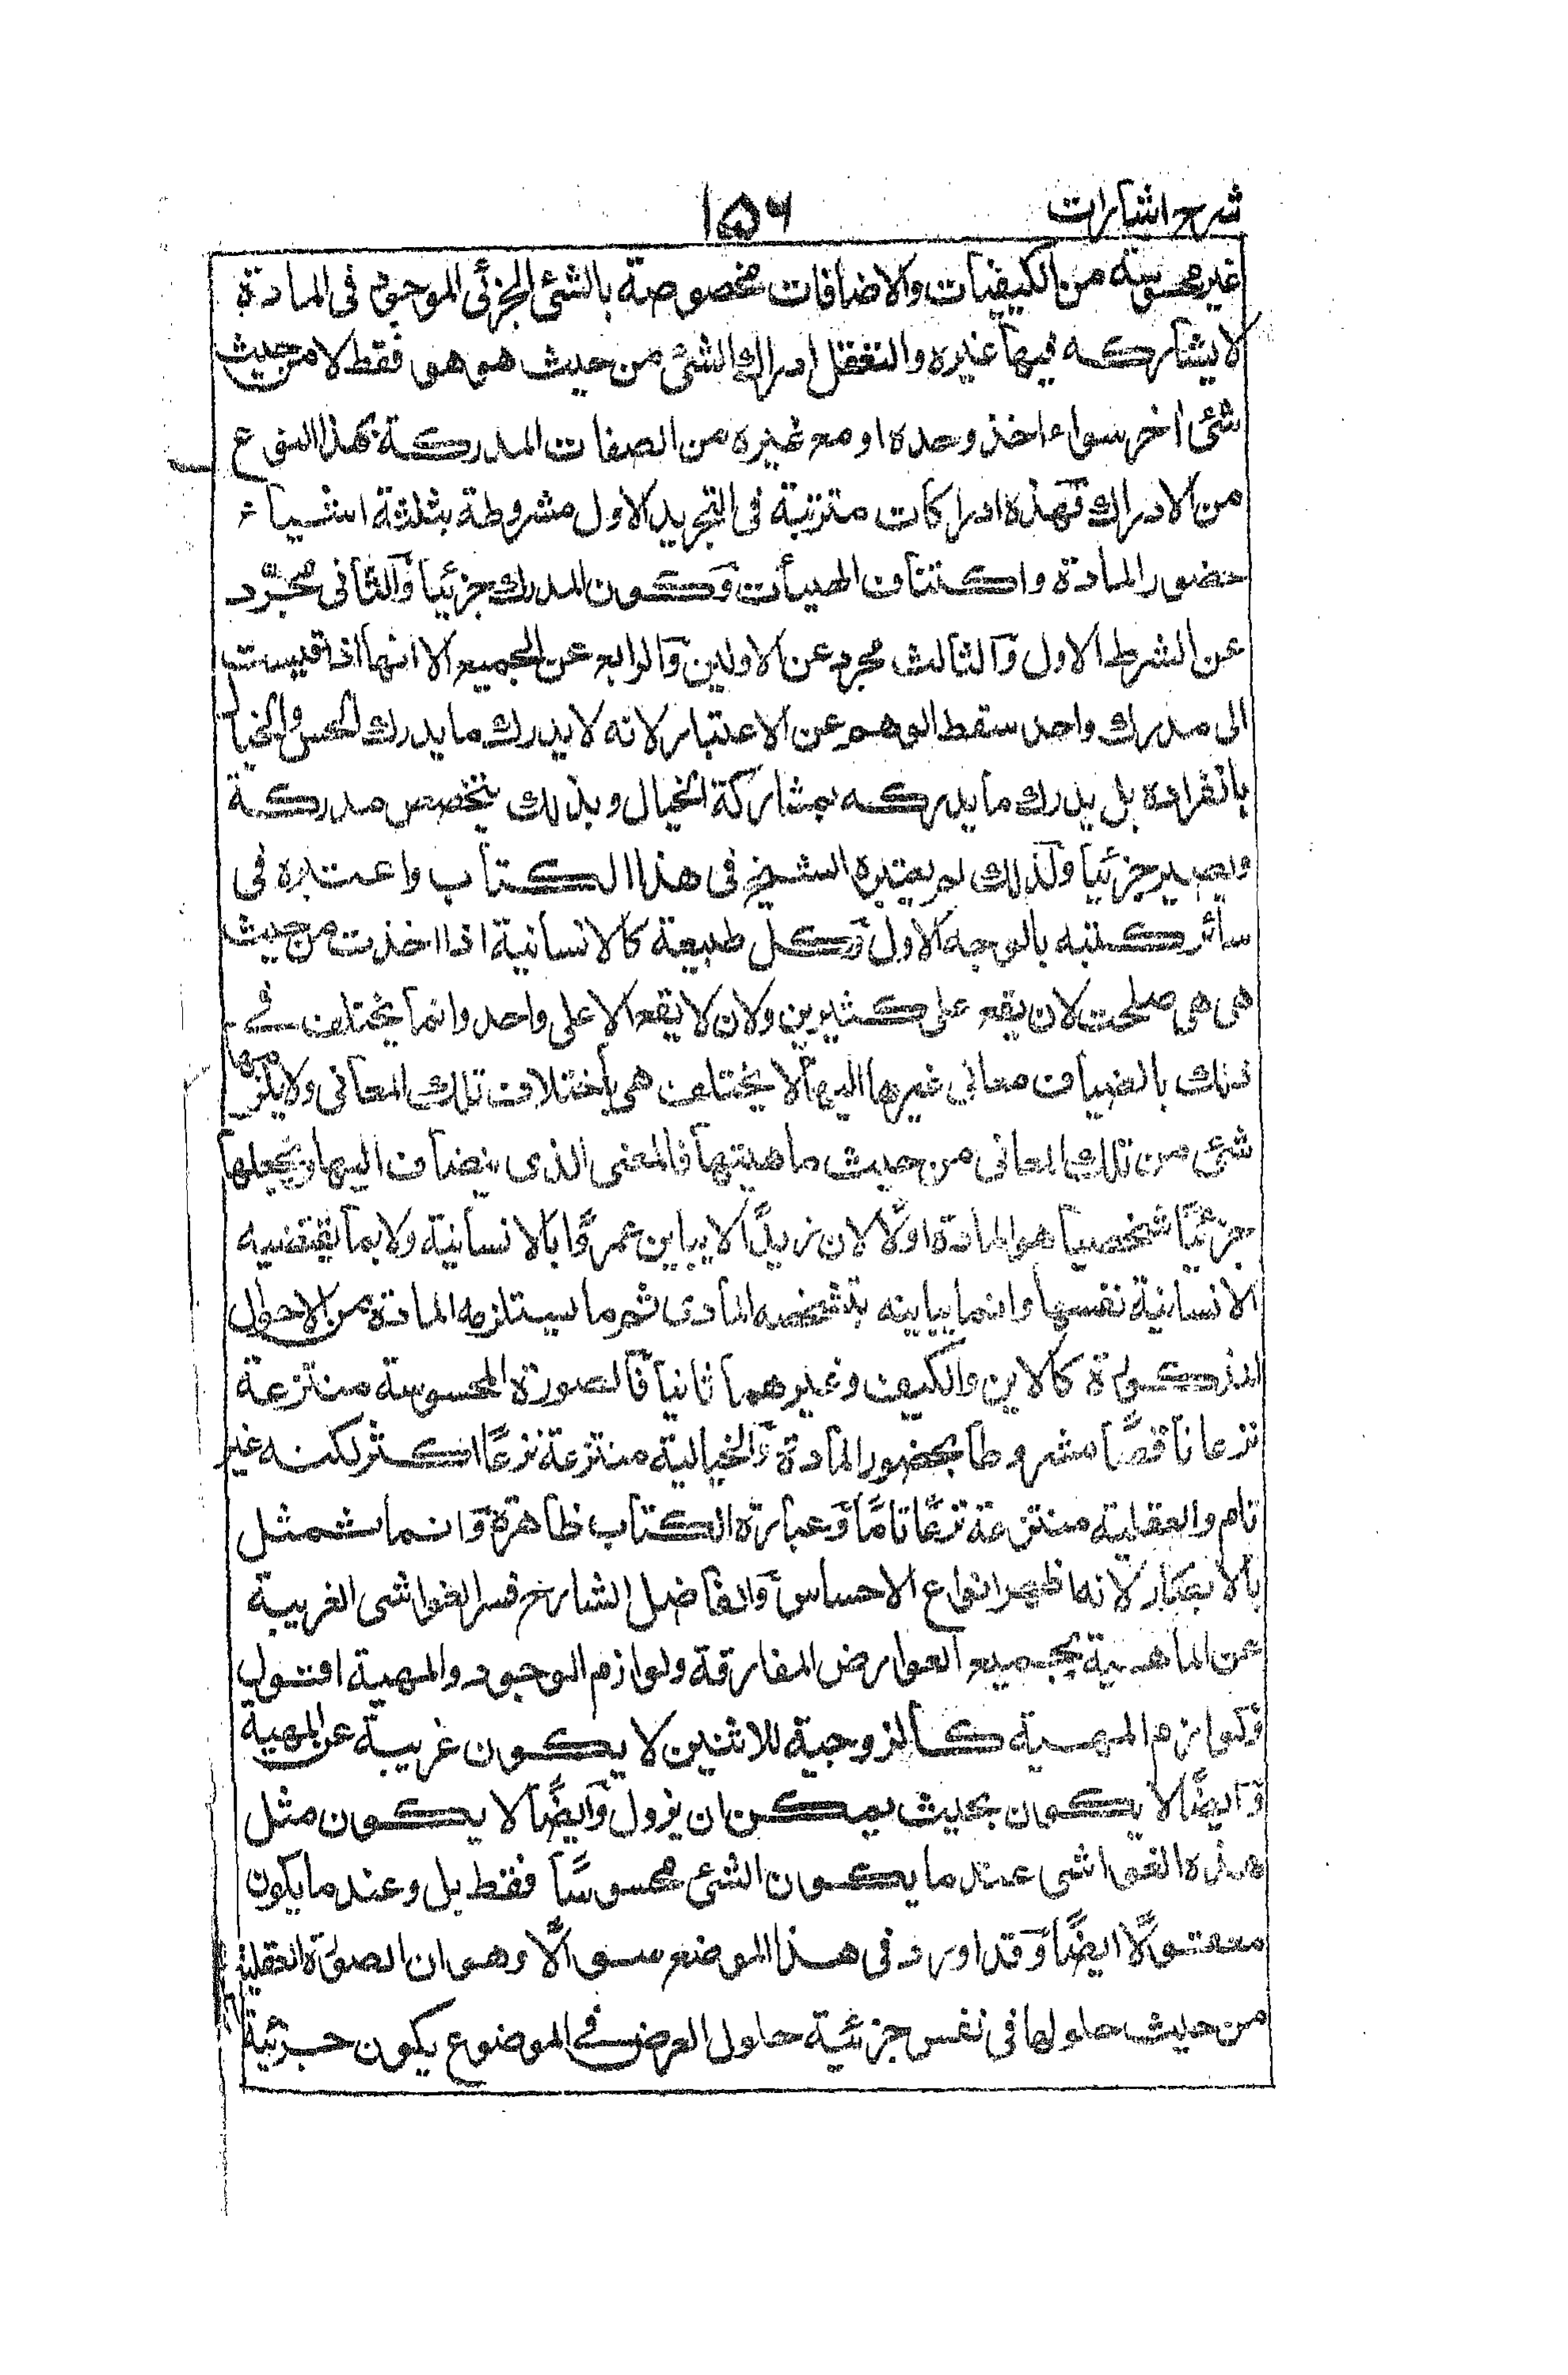 شرح اشارات ١٥٦
غير محسوسة من الكيفيات والاضافات مخصوصة بالشئ الجزئى الموجود فى المادة
لا يشاركه فيها غيره والتعقل ادراك الشئ من حيث هو هو فقط لا من حيث
شئ اخر سواء اخذ وحده او مع غيره من الصفات المدركة بهذا النوع
من الادراك فهذه ادراكات مترتبة فى التجريد الاول مشروطة بثلثة اشياء
حضور المادة واكتناف الهيأت وكون المدرك جزئيا والثانى مجرّد
عن الشرط الاول والثالث مجرد عن الاولين والرابع عن الجميع الا انها اذا قيست
الى مدرك واحد سقط الوهم عن الاعتبار لانه لا يدرك ما يدرك الحس والخيال
بانفراده بل يدرك ما يدركه بمشاركة الخيال وبذلك يتخصص مدركة
ويصير جزئيا ولذلك لم يعتبره الشيخ فى هذا الكتاب واعتبره فى
سائر كتبه بالوجه الاول وكل طبيعة كالانسانية اذا اخذت من حيث
هى هى صلحت لان يقع على كثيرين ولان لا يقع الا على واحد وانما يختلف فى
ذلك بانضياف معانى غيرها اليها لا يختلف هى باختلاف تلك المعانى ولا يلزمها
شئ من تلك المعانى من حيث ماهيتها فالمعنى الذى ينضاف اليها ويجعلها
جزئيًا شخصيا هو المادة اولًا لان زيدًا لا يباين عمروًا بالانسانية ولا بما يقتضيه
الانسانية نفسها وانما يباينه بتشخصه المادى ثم ما يستلزمه المادة من الاحوال
المذكورة كالاين والكيف وغيرهما ثانيا فالصورة المحسوسة منتزعة
نزعا ناقصًا مشروطا بحضور المادة والخيالية منتزعة نزعًا اكثر لكنه غير
تام والعقلية منتزعة نزعًا تامًا وعبارة الكتاب ظاهرة وانما تمثل
بالابصار لانه اظهر انواع الاحساس والفاضل الشارح فسر الغواشى الغريبة
عن الماهية بجميع العوارض المفارقة ولوازم الوجود والمهية اقول
ولوازم المهية كالزوجية للاثنين لا يكون غريبة عن المهية
وايضًا لا يكون بحيث يمكن ان يزول وايضًا لا يكون مثل
هذه الغواشى عند ما يكون الشئ محسوسًا فقط بل وعند ما يكون
معقولًا ايضًا وقد اورد فى هذا الموضع سوالًا وهو ان الصورة العقلية
من حيث حلولها فى نفس جزئية حلول العرض فى الموضوع يكون جزئية